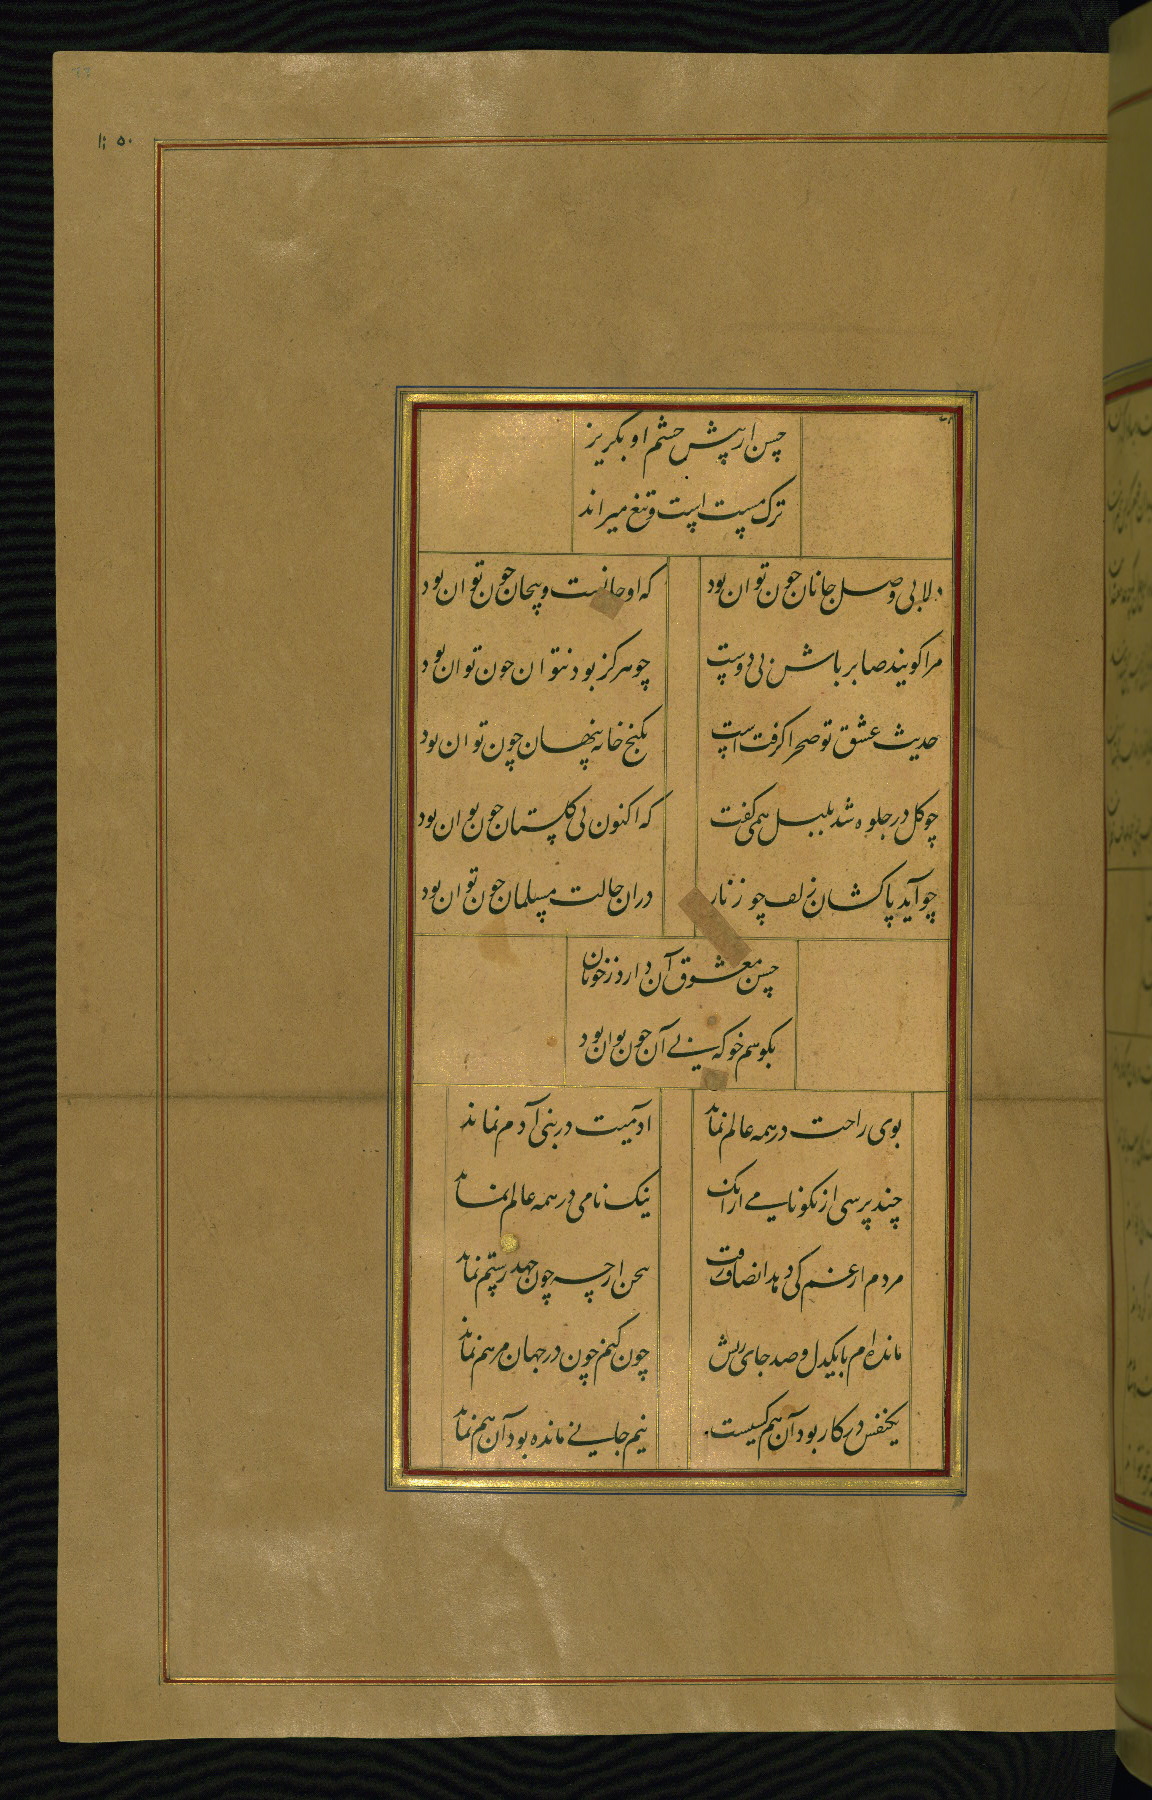 حسن از پیش چشم او بگریز
ترک مست است و تیغ میراند
دلا بی وصل جانان چون توان بود
که او جانست و بیجان چون توان بود
مرا کویند صابر باش بی دوست
چو هرکز بود نتوان چون توان بود
حدیث عشق تو صحرا کرفت است
بکنج خانه پنهان چون توان بود
چو کل در جلوه شد بلبل همی کفت
که اکنون بی کلستان چون توان بود
چو آید پاکشان زلف چو زنار
دران حالت مسلمان چون توان بود
حسن معشوق آن دارد ز خوبان
بکو هم خو که بی آن چون توان بود
بوی راحت در همه عالم نماند
آدمیت در بنی آدم نماند
چند پرسی از نکونامی از انک
نیک نامی در همه عالم نماند
مردم از غم کی دهد انصاف وقت
چون جهد رستم نماند
مانده ام با یکدل و صد جای ریش
چون کنم چون در جهان مرهم نماند
یکنفس در کار بود آن هم کسیست
نیم جانی مانده بود آن هم نماند